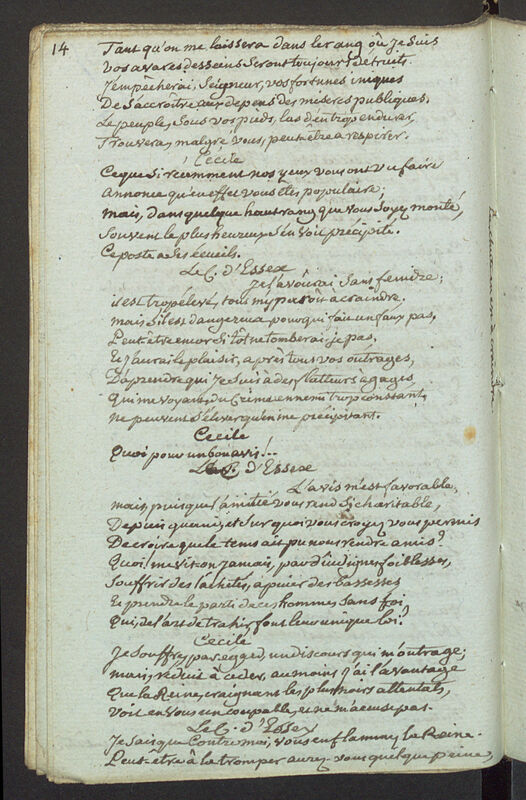 14
Tant qu'on me laissera dans le rang où je suis
vos avares desseins seront toujours détruits.
j'empêcherai, Seigneur, vos fortunes iniques
De s'accroître aux depens des miseres publiques.
Le peuple, sous vos pieds, las d'entrop endurer,
Trouvera, malgré vous, peut-être a respirer.
Cécile
Ce que si récemment nos yeux vous ont vu faire
Annonce qu'en effet vous êtes populaire;
mais, dans quelque haut rang que vous soyez monté,
souvent le plus heureux s'en voit précipité.
Ce poste a ses écueils.
Le C. d'Essex
je l'avoûrai sans feindre;
il est trop élevé, tout m'y paroit à craindre.
mais s'il est dangereux pour qui fait un faux pas,
Peut-être encor si tôt ne tomberai-je pas,
Et j'aurai le plaisir, après tous vos outrages,
D'apprendre qui je suis à des flatteurs à gages,
Qui me voyant du Crime ennemi trop constant,
ne peuvent s'élever qu'en me précipitant.
Cecile
Quoi pour un bon avis!..
Le C. d'Essex
L'avis m'est favorable,
mais, puisque l'amitié vous rend si charitable,
Depuis quand, et sur quoi vous croyez vous permis
De croire que le tems ait pu nous rendre amis?
Quoi! me vit-on jamais, par d'indignes foiblesses,
souffrir des lâchetés, apuier des bassesses
Et prendre le parti de ces hommes sans foi,
Qui, de l'art de trahir, font leur unique loi?
Cecile
Je souffre, par egard, un discours qui m'outrage;
mais, réduit à ceder, au moins j'ai l'avantage
Que la Reine, craignant les plus noirs attentats,
Voit en vous un coupable, et ne m'acuse pas.
Le C. d'Essex
Je sais que Contre moi, vous enflammez la Reine.
Peut-être à la tromper aurez-vous quelque peine,